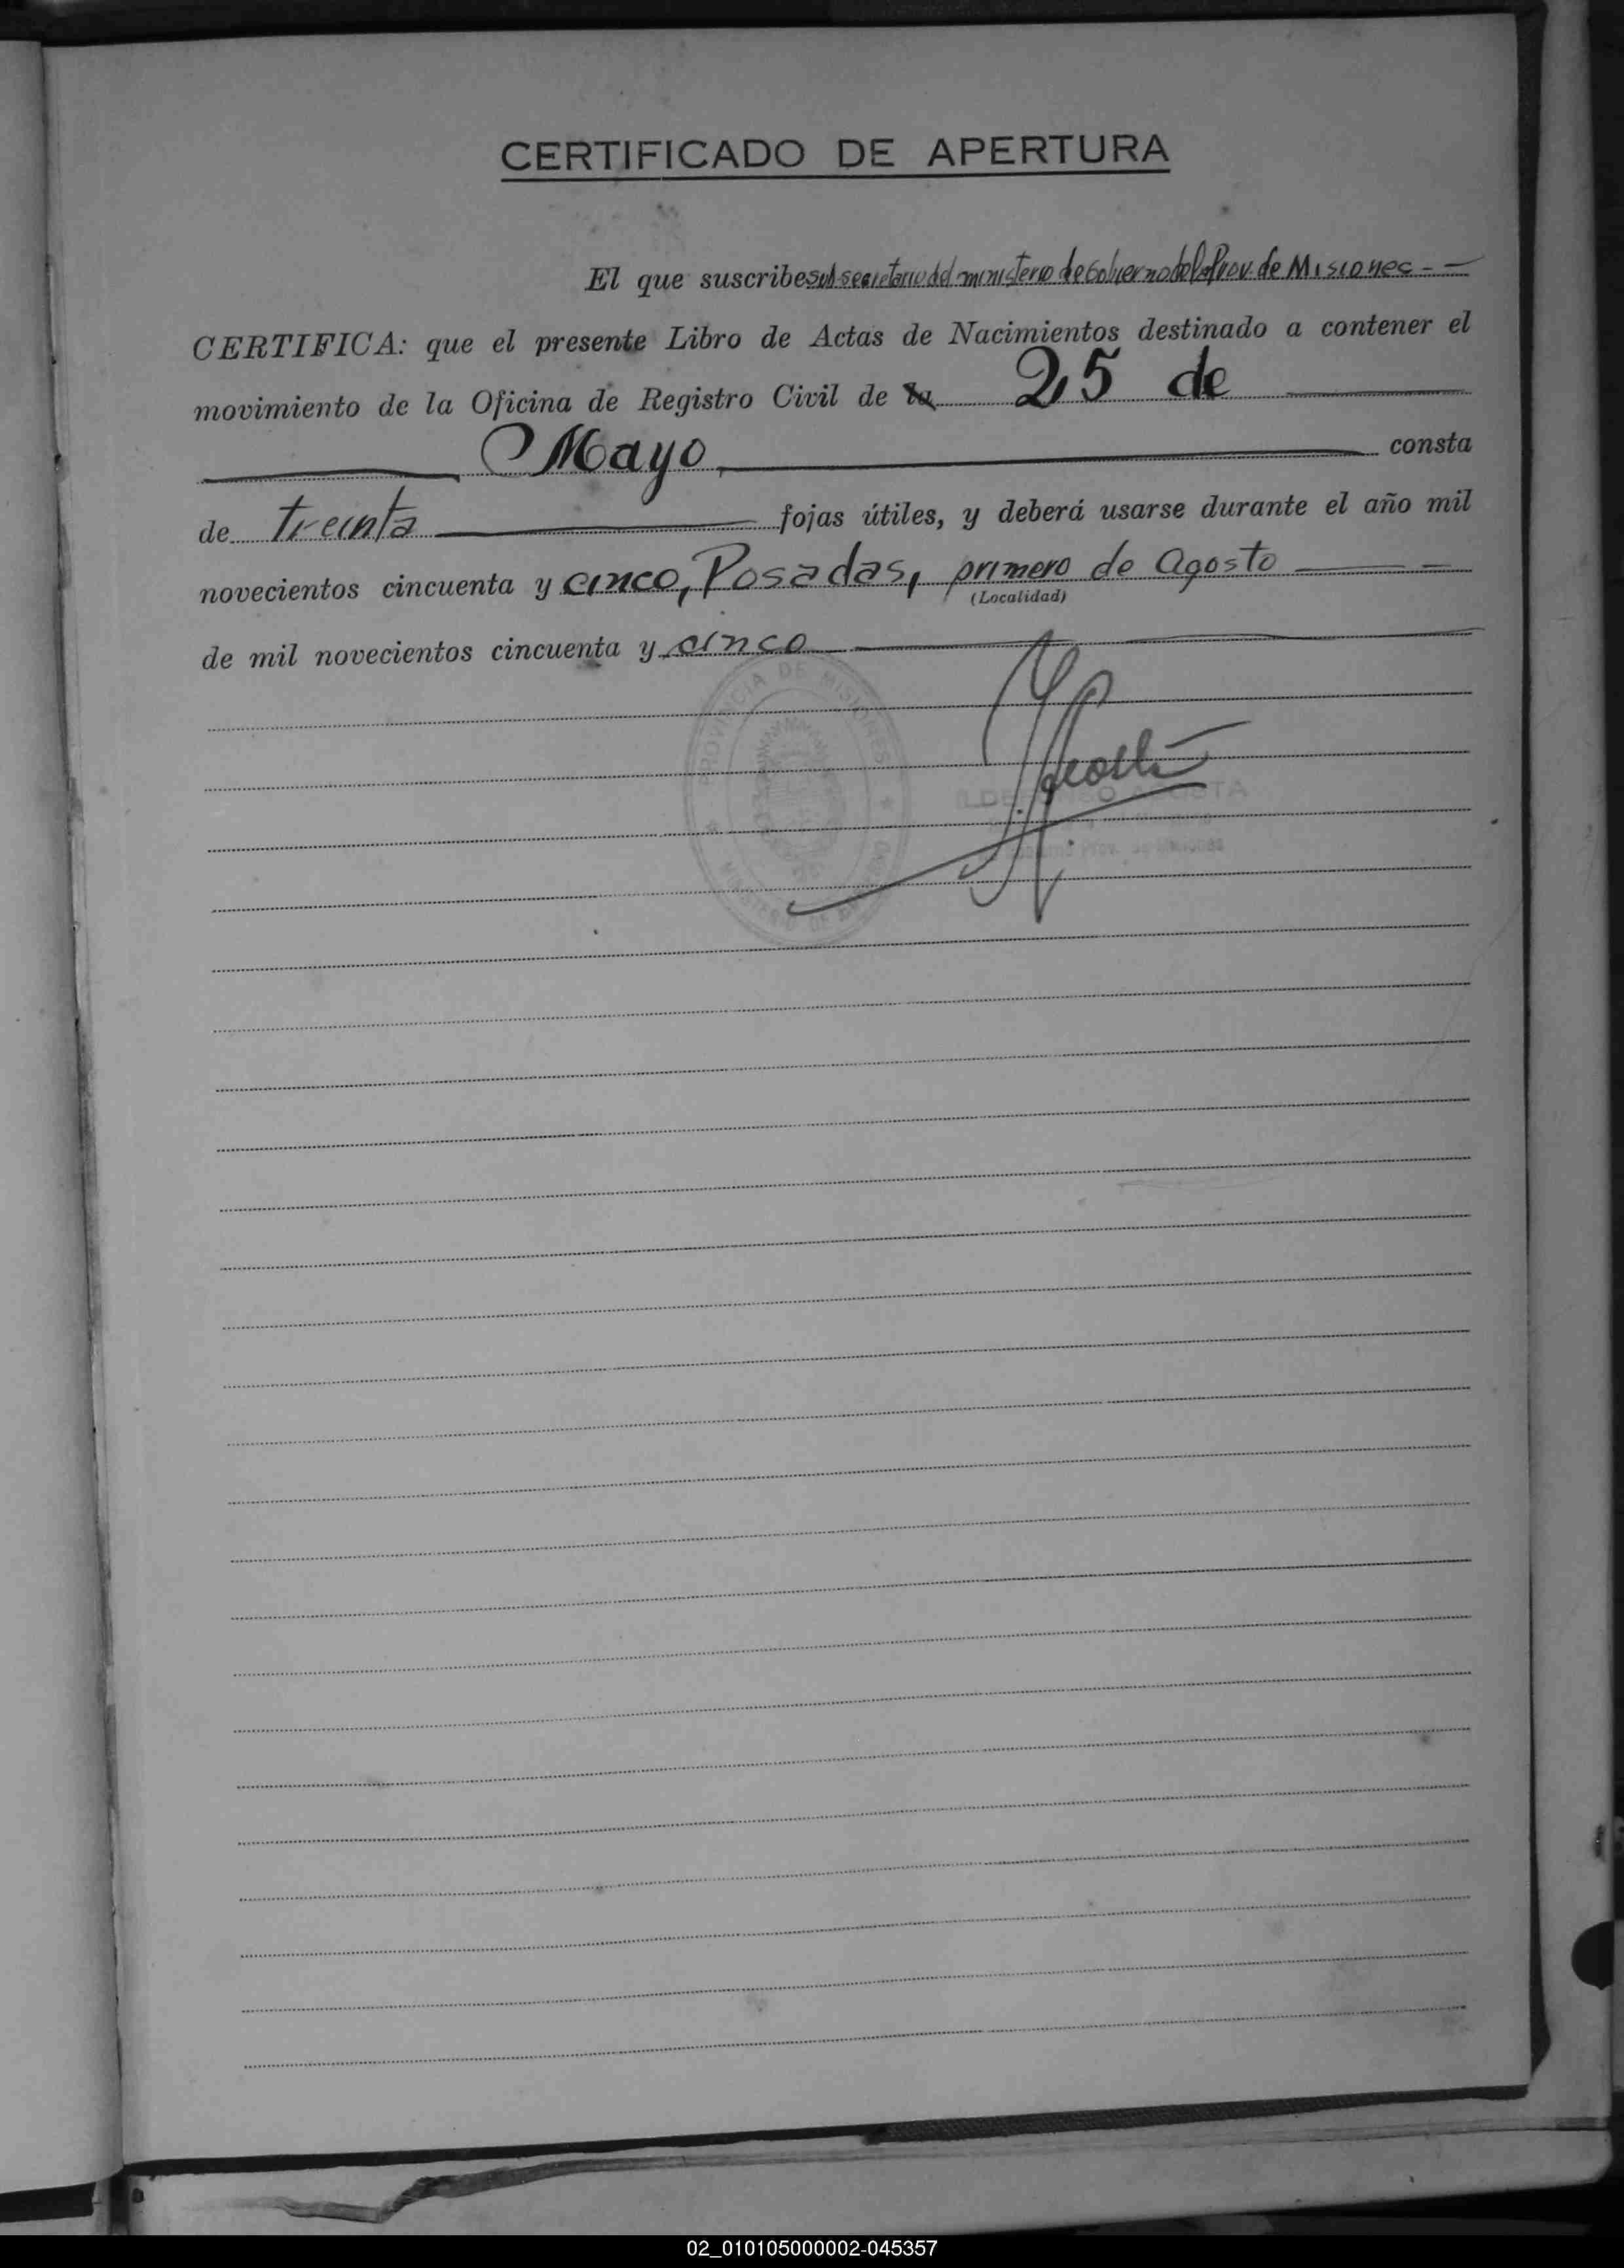 CERTIFICADO DE APERTURA
El que suscribe subsecretario del ministerio de Gobierno de la Prov. de Misiones - -
CERTIFICA: que el presente Libro de Actas de Nacimientos destinado a contener el
movimiento de la Oficina de Registro Civil de la 25 de
Mayo consta
de treinta fojas útiles, y deberá usarse durante el año mil
novecientos cincuenta y cinco, Posadas, primero de Agosto
(Localidad)
de mil novecientos cincuenta y cinco
PROVINCIA DE MISIONES
MINISTERIO DE
ACOSTA
Prov. de Misiones
02_010105000002-045357